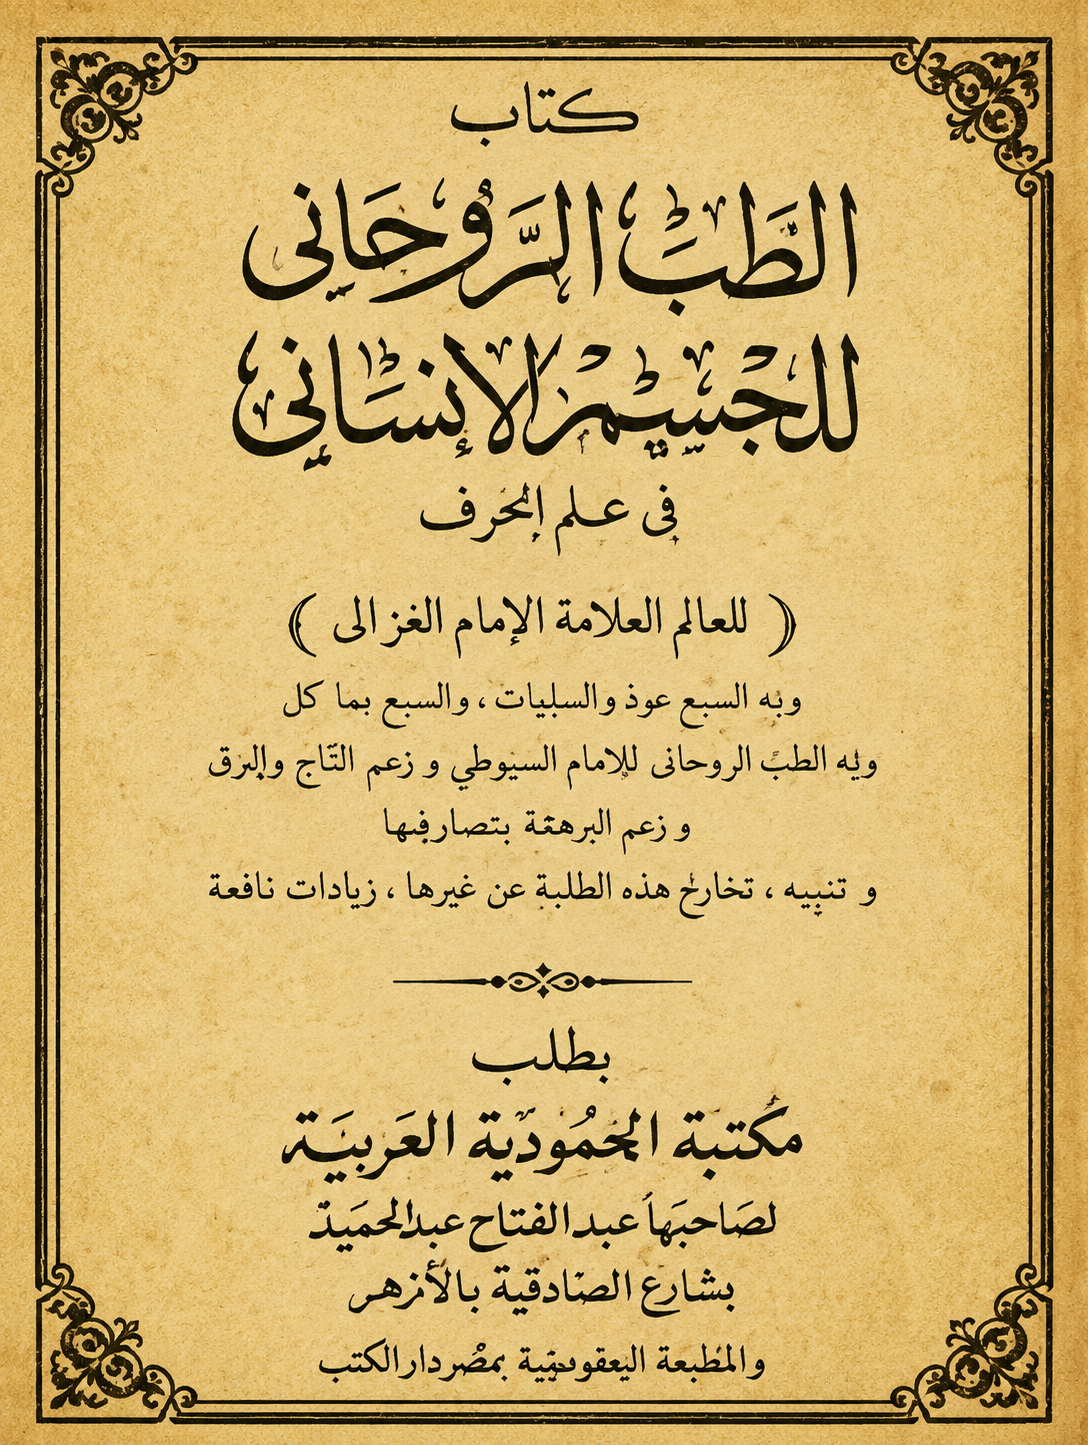 كتاب
الطَبَّ الرَّوحَانى
للجسيم الإنسانى
فى علم الحرف
( للعالم العلامة الإمام الغزالى )
وبه السبع عوذ والسلبيات ، والسبع بما كل
وبه الطب الروحانى للإمام السيوطي و زعم التّاج والبرق
و زعم البرهعة بتصارفيها
و تنبيه ، تخارخ هذه الطلبة عن غيرها ، زيادات نافعة
بطلب
مكتبة الحمُوديّة العَربيَة
لصَاحبَها عبد الفتاح عبد الحميد
بشارع الصنادقية بالأزهر
والمطبعة اليعقوبية بمصر دار الكتب